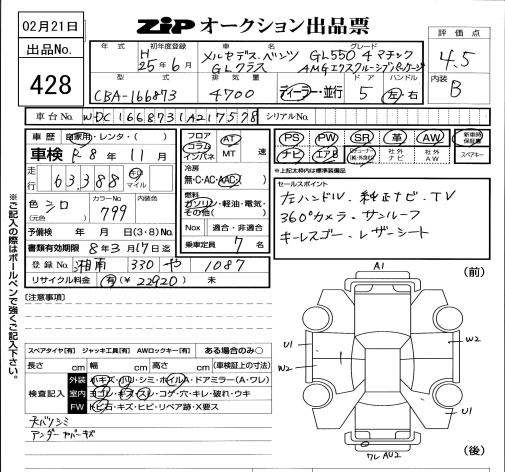 02月21日
ZIP オークション出品票
出品No.
428
年式
初年度登録
H 25年6月
車名
メルセデス・ベンツ GLクラス
グレード
GL550 4マチック AMGエクスクルーシブパッケージ
評価点
4.5
内装
B
型式
CBA-166873
排気量
4700
ディーラー・並行
ドア
5
ハンドル
左・右
車台No.
WDC1668731A217578
シリアルNo.
車歴 自家用・レンタ・( )
車検 R8年11月
走行 63,388 km マイル
色 (元色) シロ
カラーNo. 799
内装色
予備検 年 月 日 (3・8) No.
書類有効期限 8年3月17日迄
登録No. 湘南 330 や 1087
リサイクル料金 有(¥ 22920) 未
フロア コラム インパネ
AT MT 速
冷房 無・C・AC・AAC
燃料 ガソリン・軽油・電気・その他( )
Nox 適合・非適合
乗車定員 7名
PS PW SR 革 AW 新車時保証書
ナビ エアB TVチューナー(純・外含む) 社外ナビ 社外AW スペアキー
*上記太枠内は標準装備品
セールスポイント
左ハンドル、純正ナビ・TV
360°カメラ・サンルーフ
キーレスゴー・レザーシート
【注意事項】
スペアタイヤ【有】 ジャッキ工具【有】 AWロックキー【有】 ある場合のみ○
長さ cm 幅 cm 高さ cm (車検証上の寸法)
検査記入
外装 小キズ・小凹・シミ・ホイルA・ドアミラー(A・ワレ)
室内 ヨゴレ・キズ・スレ・コゲ・穴・キレ・破れ・ウキ
FW トビ石・キズ・ヒビ・リペア跡・X要ス
天バリシミ
アンダーカバーキズ
※ご記入の際はボールペンで強くご記入下さい。
A1
(前)
U1
W2
W2
U1
ワレ AU2
(後)